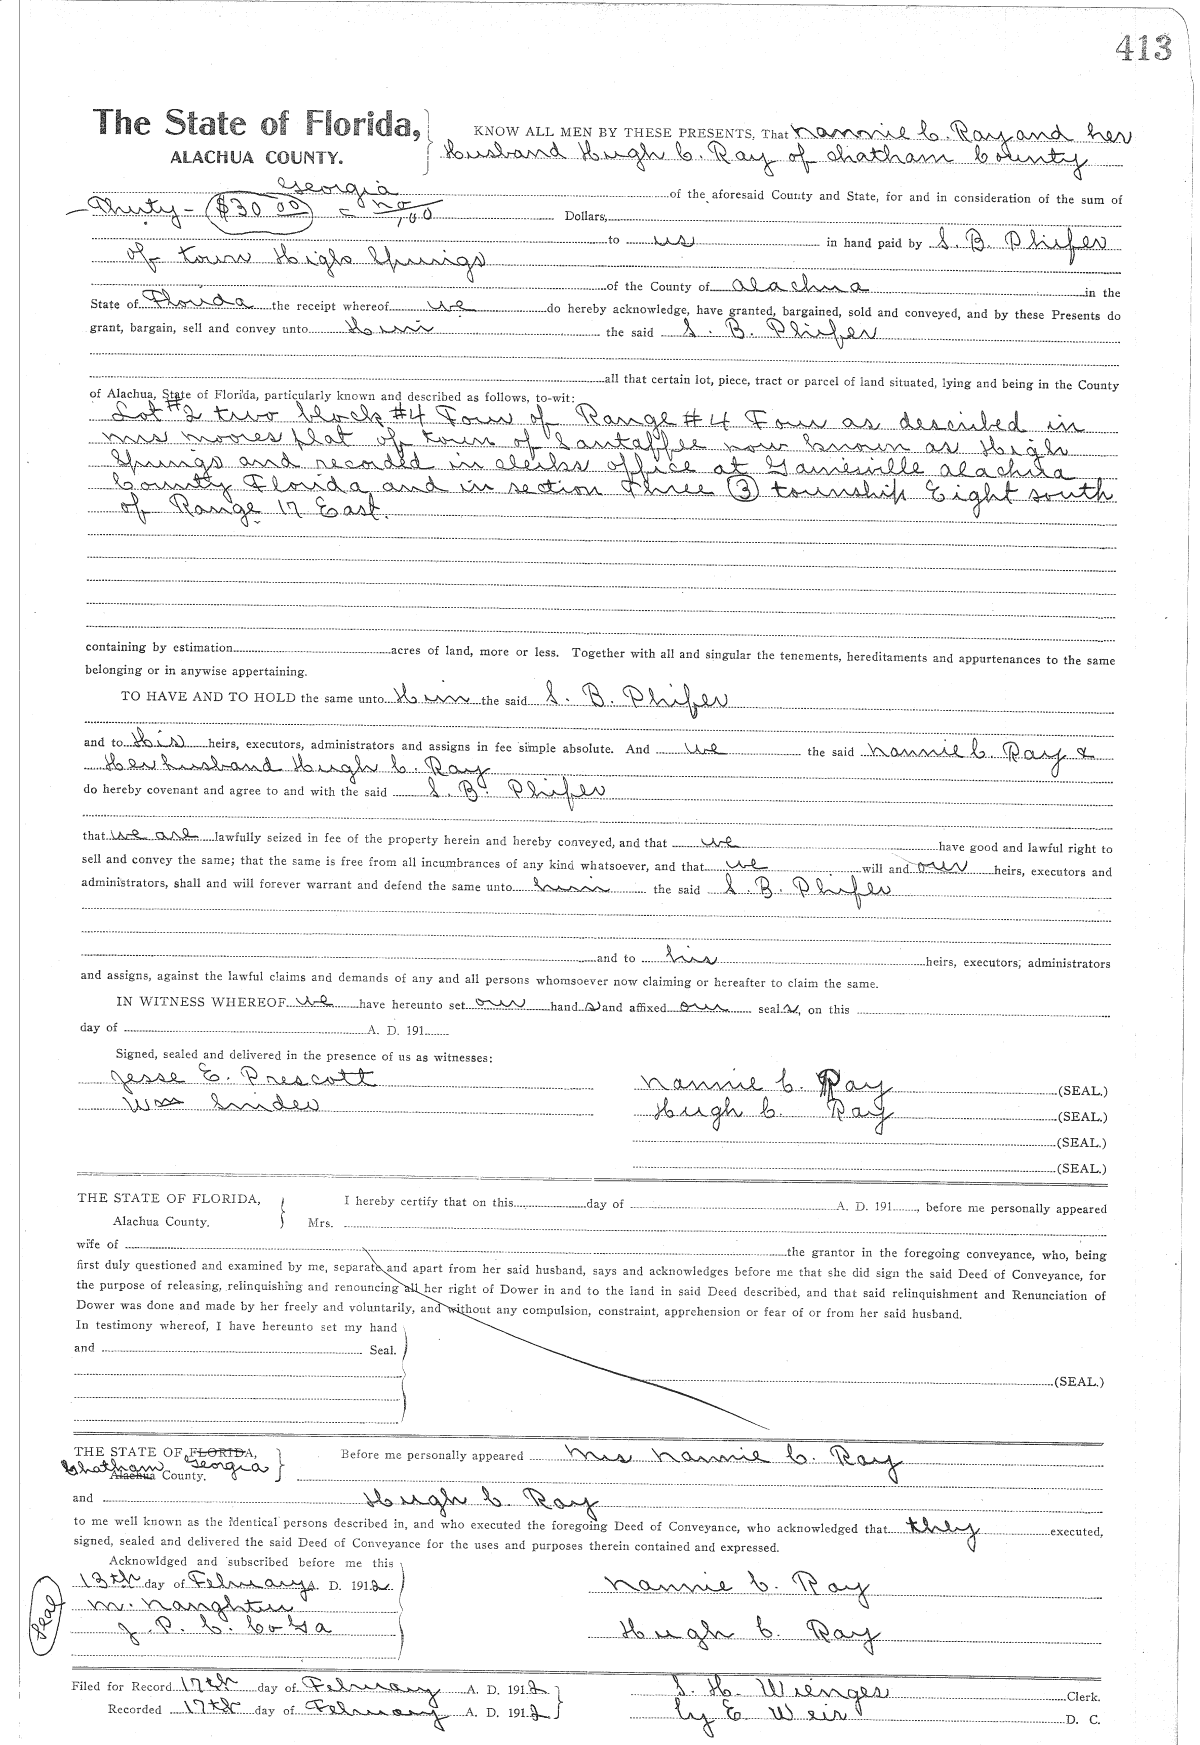 413
The State of Florida, KNOW ALL MEN BY THESE PRESENTS, That Nannie C. Ray and her
ALACHUA COUNTY. Husband Hugh C. Ray of Chatham County
Georgia of the aforesaid County and State, for and in consideration of the sum of
Thirty - ($30.00) = no/100 Dollars,
to us in hand paid by S. B. Phifer
of town High Springs
of the County of Alachua in the
State of Florida the receipt whereof we do hereby acknowledge, have granted, bargained, sold and conveyed, and by these Presents do
grant, bargain, sell and convey unto Him the said S. B. Phifer
all that certain lot, piece, tract or parcel of land situated, lying and being in the County
of Alachua, State of Florida, particularly known and described as follows, to-wit:
Lot #2 two block #4 Four of Range #4 Four as described in
mrs moores plat of town of Santaffee now known as High
Springs and recorded in clerks office at Gainesville Alachua
County Florida and in section Three (3) township Eight south
of Range 17 East.
containing by estimation acres of land, more or less. Together with all and singular the tenements, hereditaments and appurtenances to the same
belonging or in anywise appertaining.
TO HAVE AND TO HOLD the same unto Him the said S. B. Phifer
and to His heirs, executors, administrators and assigns in fee simple absolute. And we the said Nannie C. Ray &
Her husband Hugh C. Ray
do hereby covenant and agree to and with the said S. B. Phifer
that we are lawfully seized in fee of the property herein and hereby conveyed, and that we have good and lawful right to
sell and convey the same; that the same is free from all incumbrances of any kind whatsoever, and that we will and our heirs, executors and
administrators, shall and will forever warrant and defend the same unto him the said S. B. Phifer
and to his heirs, executors, administrators
and assigns, against the lawful claims and demands of any and all persons whomsoever now claiming or hereafter to claim the same.
IN WITNESS WHEREOF we have hereunto set our hand s and affixed our seal s, on this
day of A. D. 191
Signed, sealed and delivered in the presence of us as witnesses:
Jesse E. Prescott Nannie C. Ray (SEAL.)
Wm Snider Hugh C. Ray (SEAL.)
(SEAL.)
(SEAL.)
THE STATE OF FLORIDA, I hereby certify that on this day of A. D. 191, before me personally appeared
Alachua County. Mrs.
wife of the grantor in the foregoing conveyance, who, being
first duly questioned and examined by me, separate and apart from her said husband, says and acknowledges before me that she did sign the said Deed of Conveyance, for
the purpose of releasing, relinquishing and renouncing all her right of Dower in and to the land in said Deed described, and that said relinquishment and Renunciation of
Dower was done and made by her freely and voluntarily, and without any compulsion, constraint, apprehension or fear of or from her said husband.
In testimony whereof, I have hereunto set my hand
and Seal.
(SEAL.)
THE STATE OF FLORIDA, Before me personally appeared Mrs Nannie C. Ray
Chatham Georgia
Alachua County.
and Hugh C. Ray
to me well known as the identical persons described in, and who executed the foregoing Deed of Conveyance, who acknowledged that they executed,
signed, sealed and delivered the said Deed of Conveyance for the uses and purposes therein contained and expressed.
Acknowldged and subscribed before me this
13th day of February A. D. 1912 Nannie C. Ray
M. Naughtin
J. P. C. Co Ga Hugh C. Ray
Seal
Filed for Record 17th day of February A. D. 1912 S. H. Wienges Clerk.
Recorded 17th day of February A. D. 1912 by E. Weir D. C.